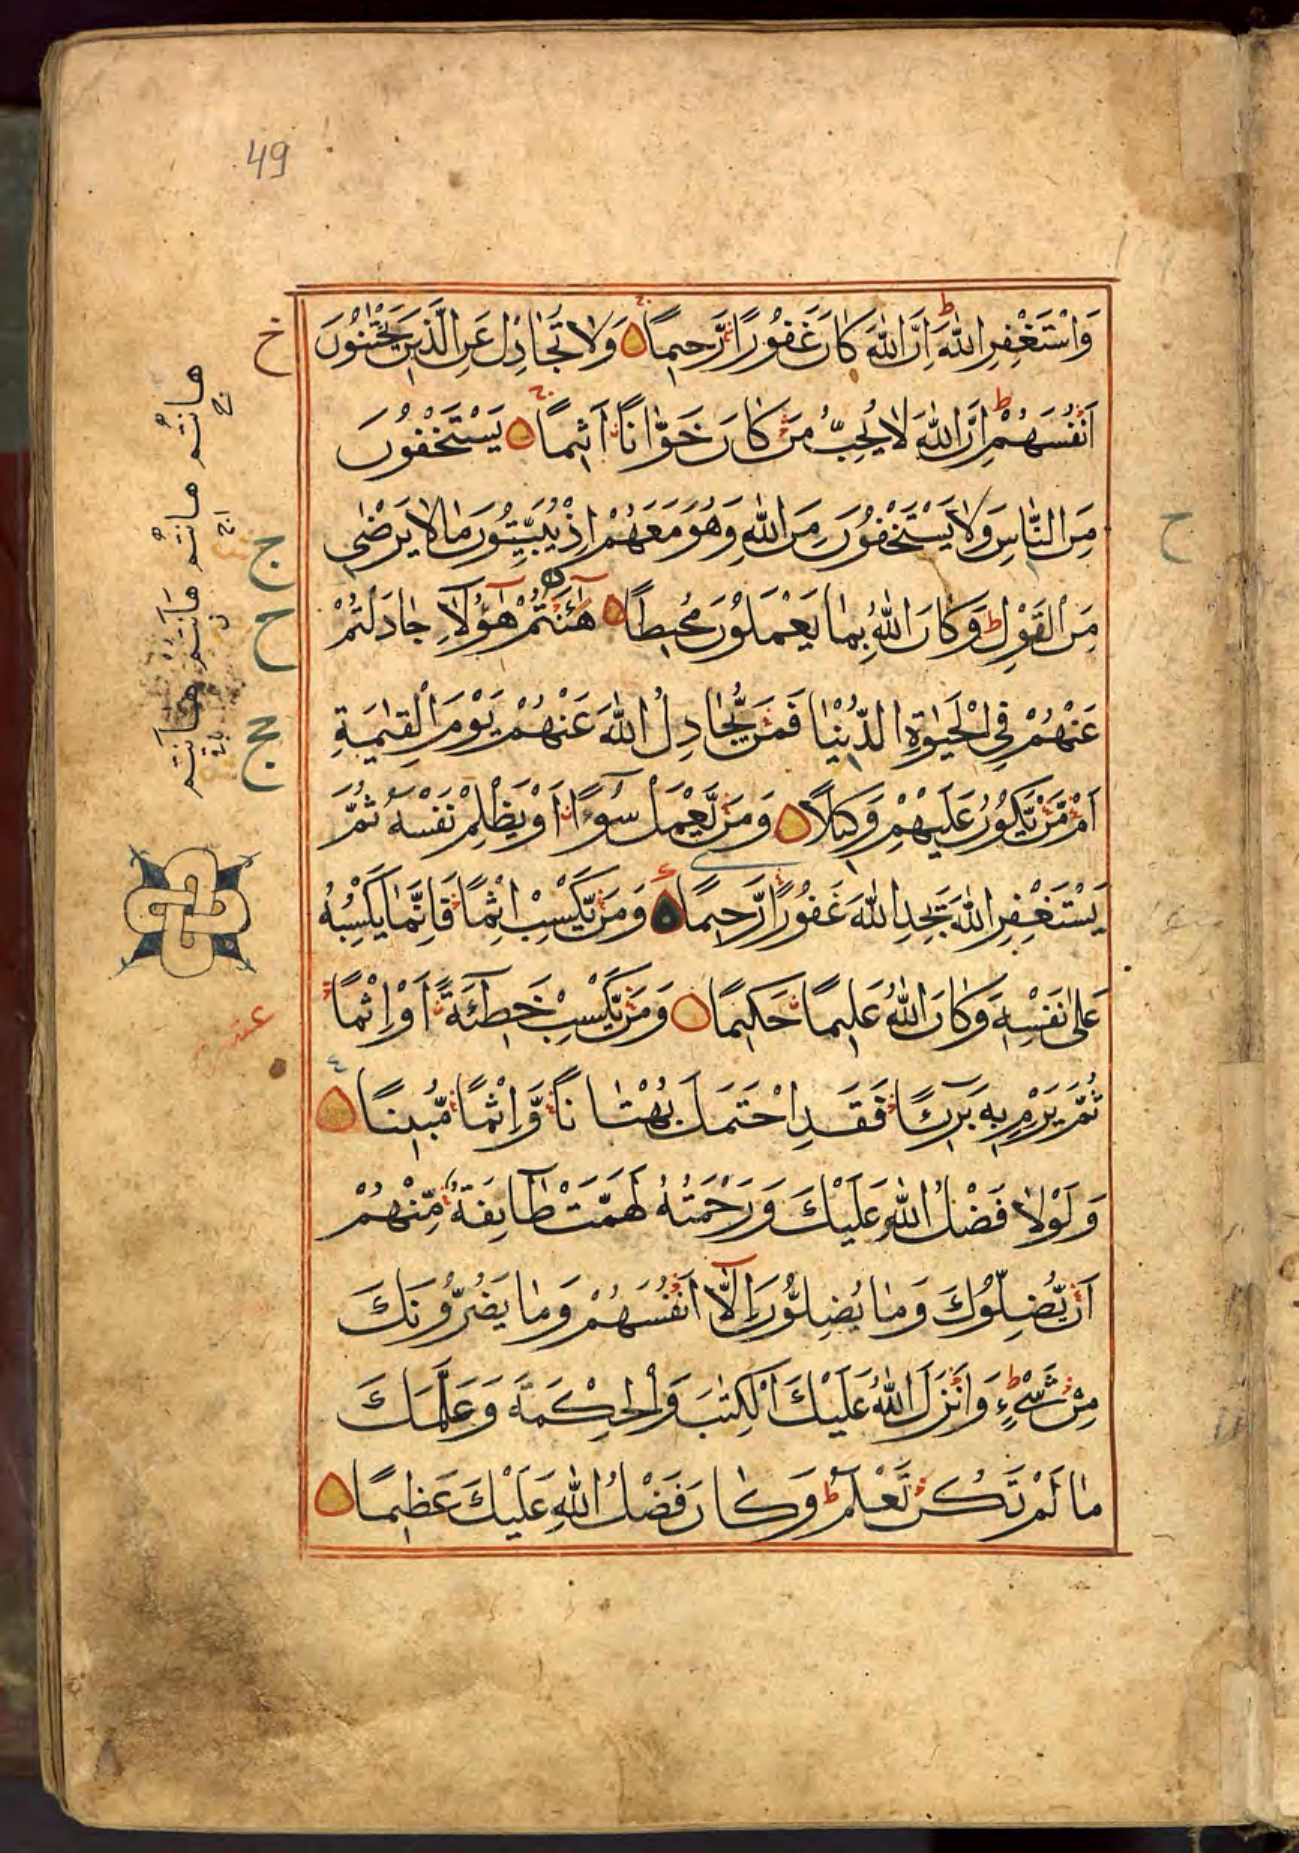 49
وَاسْتَغْفِرِ اللّٰهَ اِنَّ اللّٰهَ كَانَ غَفُورًا رَّحِيمًا وَلَا تُجَادِلْ عَنِ الَّذِينَ يَخْتَانُونَ
اَنْفُسَهُمْ اِنَّ اللّٰهَ لَا يُحِبُّ مَنْ كَانَ خَوَّانًا اَثِيمًا يَسْتَخْفُونَ
مِنَ النَّاسِ وَلَا يَسْتَخْفُونَ مِنَ اللّٰهِ وَهُوَ مَعَهُمْ اِذْ يُبَيِّتُونَ مَا لَا يَرْضٰى
مِنَ الْقَوْلِ وَكَانَ اللّٰهُ بِمَا يَعْمَلُونَ مُحِيطًا هٰٓاَنْتُمْ هٰٓؤُلَآءِ جَادَلْتُمْ
عَنْهُمْ فِي الْحَيٰوةِ الدُّنْيَا فَمَنْ يُّجَادِلُ اللّٰهَ عَنْهُمْ يَوْمَ الْقِيٰمَةِ
اَمْ مَّنْ يَّكُونُ عَلَيْهِمْ وَكِيلًا وَمَنْ يَّعْمَلْ سُوٓءًا اَوْ يَظْلِمْ نَفْسَهُ ثُمَّ
يَسْتَغْفِرِ اللّٰهَ يَجِدِ اللّٰهَ غَفُورًا رَّحِيمًا وَمَنْ يَّكْسِبْ اِثْمًا فَاِنَّمَا يَكْسِبُهُ
عَلٰى نَفْسِهٖ وَكَانَ اللّٰهُ عَلِيمًا حَكِيمًا وَمَنْ يَّكْسِبْ خَطِيٓئَةً اَوْ اِثْمًا
ثُمَّ يَرْمِ بِهٖ بَرِيٓئًا فَقَدِ احْتَمَلَ بُهْتَانًا وَّاِثْمًا مُّبِينًا
وَلَوْلَا فَضْلُ اللّٰهِ عَلَيْكَ وَرَحْمَتُهُ لَهَمَّتْ طَآئِفَةٌ مِّنْهُمْ
اَنْ يُّضِلُّوكَ وَمَا يُضِلُّونَ اِلَّآ اَنْفُسَهُمْ وَمَا يَضُرُّونَكَ
مِنْ شَيْءٍ وَاَنْزَلَ اللّٰهُ عَلَيْكَ الْكِتٰبَ وَالْحِكْمَةَ وَعَلَّمَكَ
مَا لَمْ تَكُنْ تَعْلَمُ وَكَانَ فَضْلُ اللّٰهِ عَلَيْكَ عَظِيمًا
هانتم هانتم هانتم هانتم
خ
ج
ح
ح
عشر